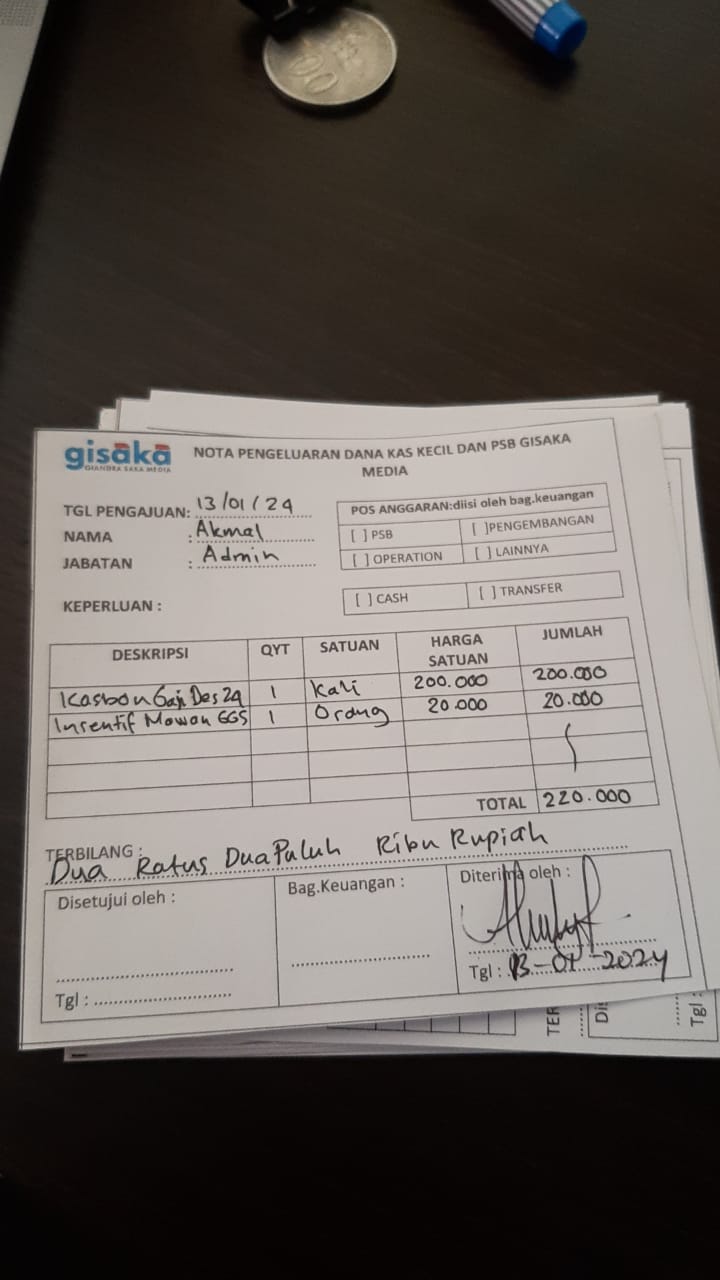 gisaka
GIANDRA SAKA MEDIA
NOTA PENGELUARAN DANA KAS KECIL DAN PSB GISAKA
MEDIA
TGL PENGAJUAN: 13/01/24
NAMA : Akmal
JABATAN : Admin
KEPERLUAN :
POS ANGGARAN:diisi oleh bag.keuangan
[ ] PSB [ ]PENGEMBANGAN
[ ] OPERATION [ ] LAINNYA
[ ] CASH [ ] TRANSFER
DESKRIPSI QYT SATUAN HARGA SATUAN JUMLAH
Kasbon Gaji Des 24 1 Kali 200.000 200.000
Insentif Mawan GGS 1 Orang 20.000 20.000
TOTAL 220.000
TERBILANG :
Dua Ratus Dua Puluh Ribu Rupiah
Disetujui oleh :
Tgl :
Bag.Keuangan :
Diterima oleh :
Tgl : 13-01-2024
TER
Di
Tgl :